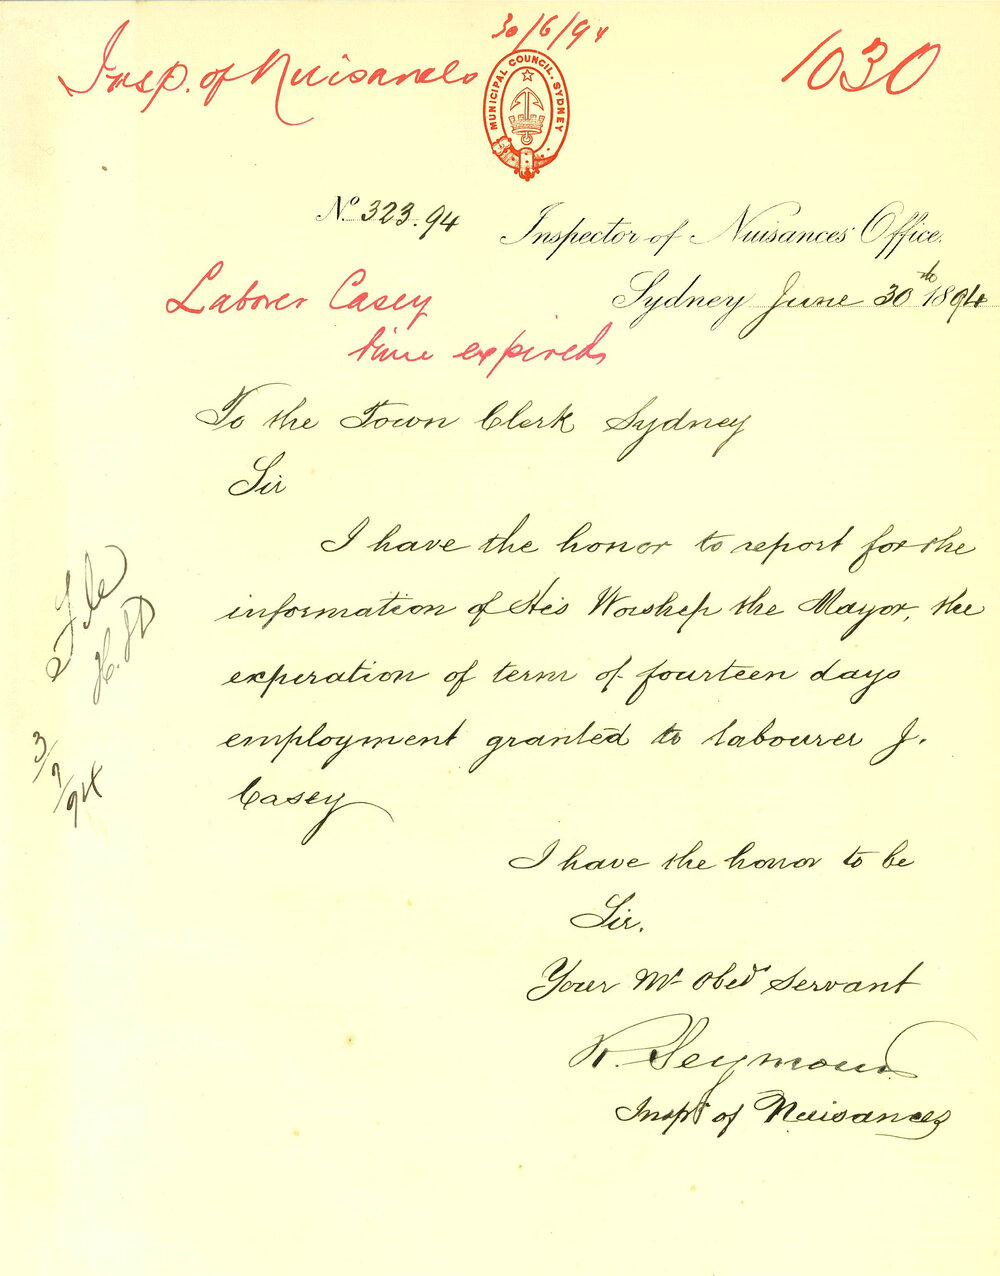 30/6/94
Insp. of Nuisances
1030
MUNICIPAL COUNCIL. SYDNEY
No. 323.94
Inspector of Nuisances' Office.
Laborer Casey
time expired
Sydney June 30th 1894
To the Town Clerk Sydney
Sir
I have the honor to report for the
information of His Worship the Mayor, the
expiration of term of fourteen days
employment granted to labourer J.
Casey
File
3/7/94
I have the honor to be
Sir.
Your Mt Obed Servant
R. Seymour
Inspr of Nuisances